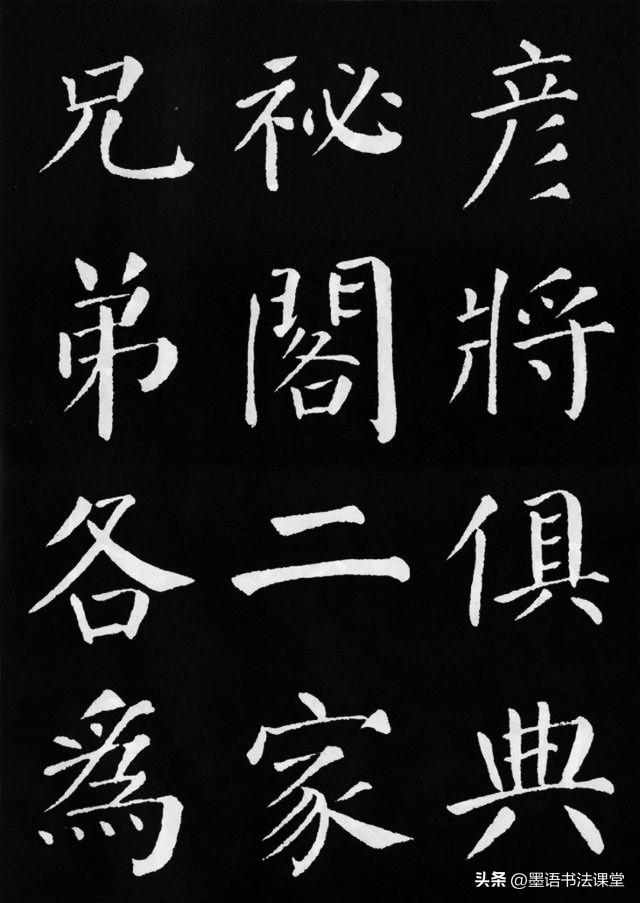 彦將俱典
祕閣二家
兄弟各爲
头条 @墨语书法课堂